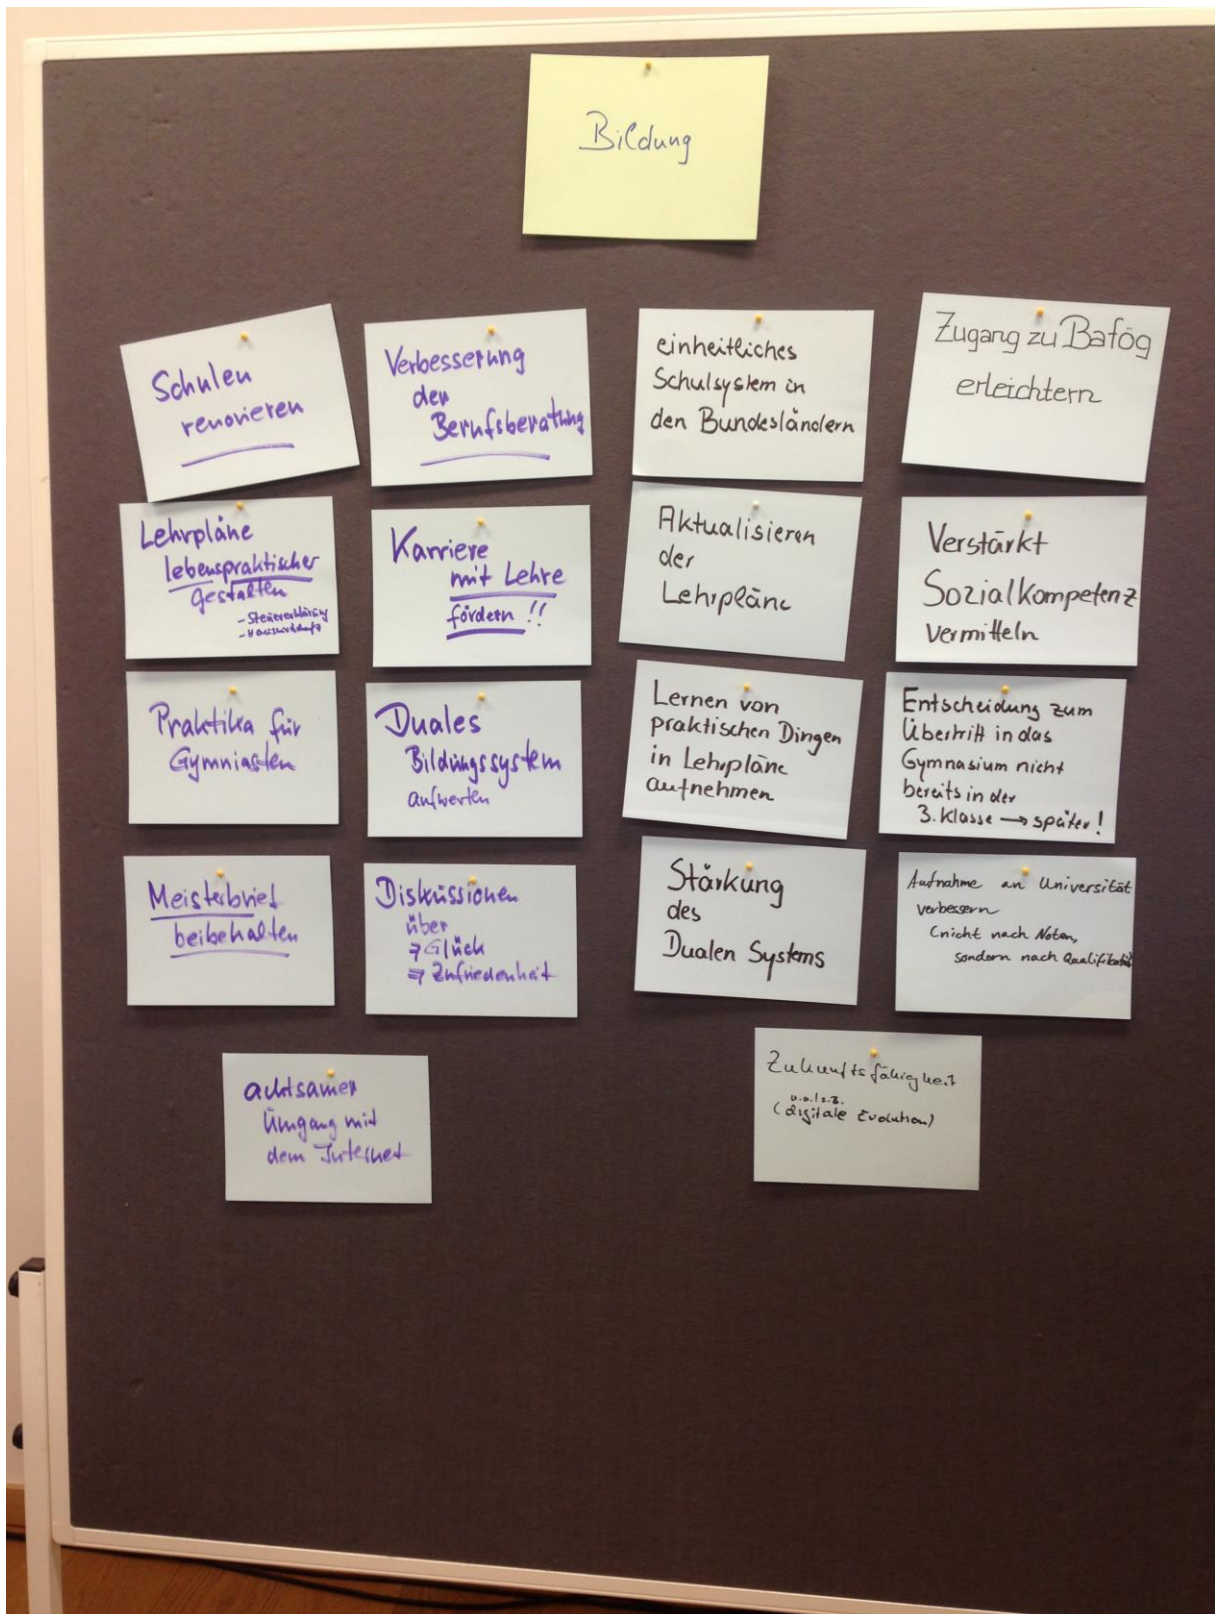 Bildung
Schulen
renovieren
Verbesserung
der
Berufsberatung
einheitliches
Schulsystem in
den Bundesländern
Zugang zu Bafög
erleichtern
Lehrpläne
lebenspraktischer
gestalten
- Steuererklärung
- Hauswirtschaft
Karriere
mit Lehre
fördern !!
Aktualisieren
der
Lehrpläne
Verstärkt
Sozialkompetenz
vermitteln
Praktika für
Gymniasten
Duales
Bildungssystem
aufwerten
Lernen von
praktischen Dingen
in Lehrpläne
aufnehmen
Entscheidung zum
Übertritt in das
Gymnasium nicht
bereits in der
3. Klasse → später !
Meisterbrief
beibehalten
Diskussionen
über
⇒ Glück
⇒ Zufriedenheit
Stärkung
des
Dualen Systems
Aufnahme an Universität
verbessern
(nicht nach Noten,
sondern nach Qualifikation
achtsamer
Umgang mit
dem Internet
Zukunftsfähigkeit
u.a./z.B.
(digitale Evolution)